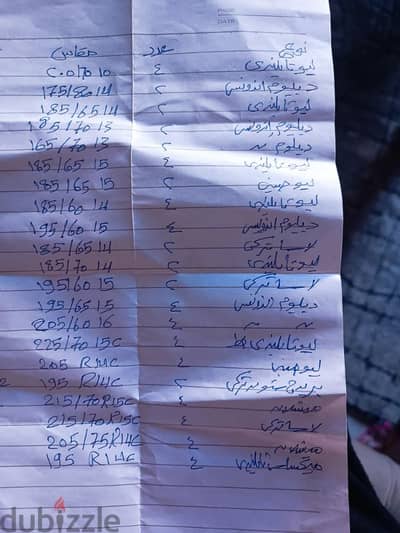 PAGE
DATE
نوع عدد مقاس
ليو تايلندي ٤
ديلوم اندونسي ٢ 175/80 14
ليو تايلندي ٢ 185/65 14
ديلوم اندونسي ٢ 185/70 13
ديلوم ٢ 165/70 13
ليو تايلندي ٤ 185/65 15
ليو صيني ٢ 185/65 15
ليو تايلندي ٤ 185/60 14
ديلوم اندونسي ٤ 195/60 15
لاسا تركي ٢ 185/65 14
ليو تايلندي ٢ 185/70 14
لاسا تركي ٢ 195/60 15
ديلوم اندونسي ٤ 195/65 15
٤ 205/60 16
ليو تايلندي خط ٤ 225/70 15C
ليو صيني ٤ 205 R14C
تركي ٢ 195 R14C
٤ 215/70R15C
لاسا تركي ٤ 215/70R15C
٤ 205/75R14C
تايلندي ٤ 195 R14C
dubizzle